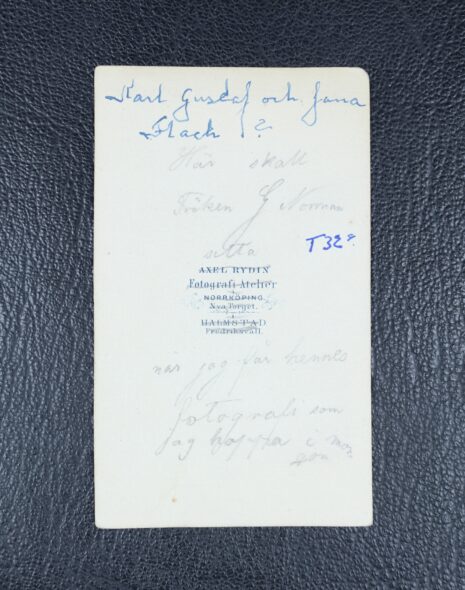 Karl Gustaf och Jana
Flach ?
Här skall
Fröken G Norman
sitta
T32?
AXEL RYDIN
Fotografi Atelier
NORRKÖPING
Nya Torget.
HALMSTAD
Fredriksvall.
när jag får hennes
fotografi som
jag hoppa i